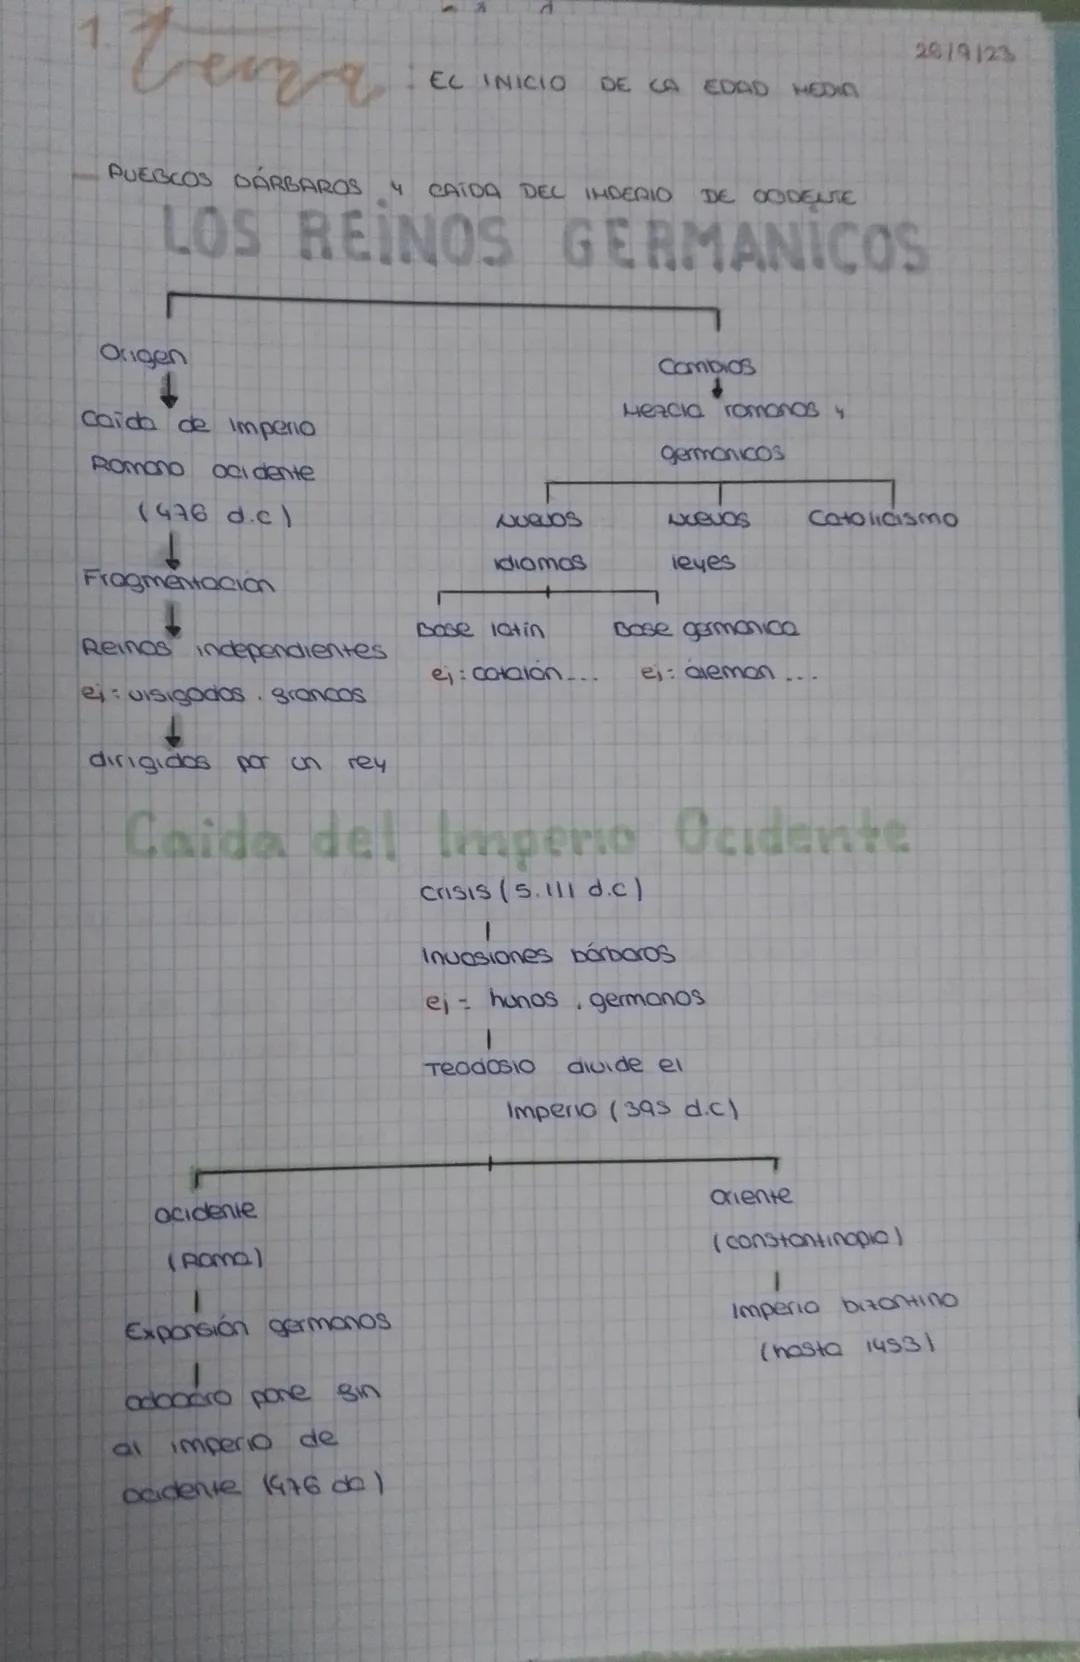 1. Tema: EL INICIO DE LA EDAD MEDIA
28/9/23
PUEBLOS BÁRBAROS Y CAÍDA DEL IMPERIO DE OCIDENTE
LOS REINOS GERMANICOS
Origen
Caída de imperio
Romano ocidente
(476 d.c)
Fragmentación
Reinos independientes
ej: visigodos, francos
dirigidos por un rey
Cambios
Mezcla romanos y
germanicos
Nuevos
idiomas
Nuevos
leyes
Catolicismo
Base latín
ej: catalán...
Base germanica
ej: aleman...
Caida del Imperio Ocidente
Crisis (S.III d.c)
Invasiones bárbaros
ej = hunos, germanos
Teodosio divide el
Imperio (395 d.c)
ocidente
(Roma)
Expansión germanos
odoacro pone fin
al imperio de
ocidente (476 dc)
oriente
(constantinopla)
Imperio bizantino
(hasta 1453)